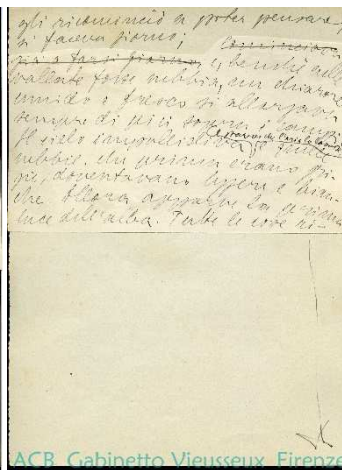 egli ricominciò a poter pensare,
si faceva giorno;
già a farsi giorno e, benché nella
vallata fosse nebbia, un chiarore
umido e fresco si allargava
sempre di più sopra i campi.
Il cielo impallidiva e
nebbie, che prima erano gri-
gie, doventavano leggere e bian-
che. Allora apparve la prima
luce dell'alba. Tutte le cose ri-
ACB Gabinetto Vieusseux Firenze